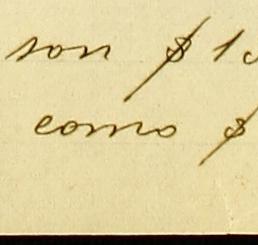 son $ 1
como $